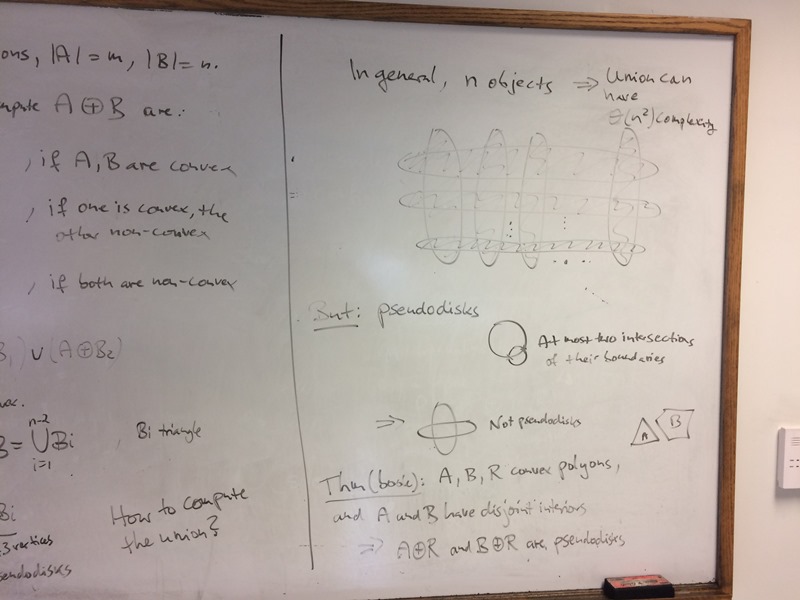 ons, |A| = m, |B| = n.
mpute A ⊕ B are:
, if A, B are convex
, if one is convex, the
other non-convex
, if both are non-convex
B₁) ∪ (A⊕B₂)
B = ⋃ Bi
n-2
i=1
, Bi triangle
Bi
3 vertices
pseudodisks
How to compute
the union?
In general, n objects ⇒ Union can
have
Θ(n²) complexity
But: pseudodisks
At most two intersections
of their boundaries
⇒ Not pseudodisks
A B
Thm (book): A, B, R convex polygons,
and A and B have disjoint interiors
⇒ A⊕R and B⊕R are pseudodisks